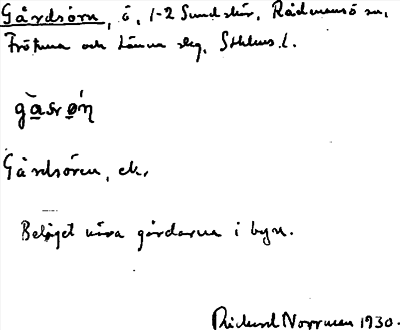 Gårdsörn, ö, 1-2 Sundskär, Rådmansö sn,
Frötuna och Länna skg, Sthlms l.
gasrøn
Gårdsören, ek.
Beläget nära gårdarna i byn.
Rickard Norrman 1930.